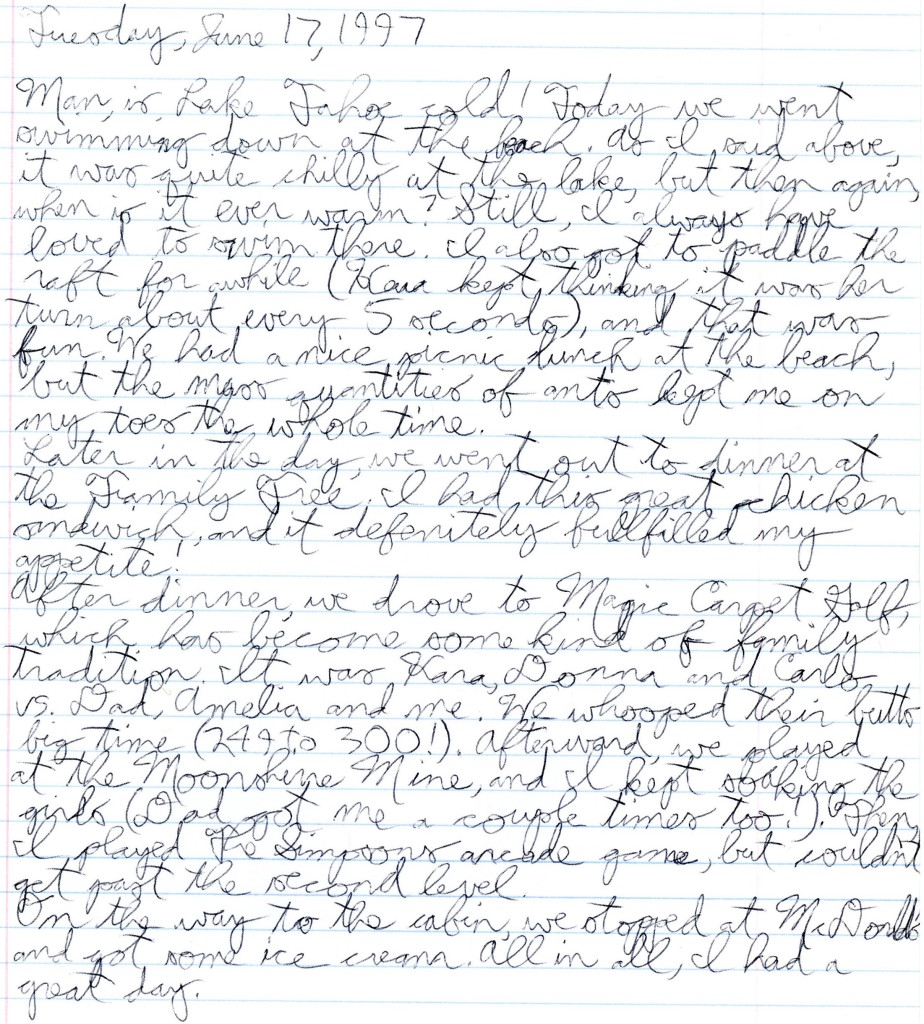 Tuesday, June 17, 1997
Man, is Lake Tahoe cold! Today we went
swimming down at the beach. As I said above,
it was quite chilly at the lake, but then again,
when is it ever warm? Still, I always have
loved to swim there. I also got to paddle the
raft for awhile (Kara kept thinking it was her
turn about every 5 seconds), and that was
fun. We had a nice picnic lunch at the beach,
but the mass quantities of ants kept me on
my toes the whole time.
Later in the day, we went out to dinner at
the Family Tree. I had this great chicken
sandwich, and it defenitely fullfilled my
appetite!
After dinner, we drove to Magic Carpet Golf,
which has become some kind of family
tradition. It was Kara, Donna and Carlo
vs. Dad, Amelia and me. We whooped their butts
big time (249 to 300!). Afterward, we played
at the Moonshine Mine, and I kept soaking the
girls (Dad got me a couple times too!). Then,
I played The Simpsons arcade game, but couldn't
get past the second level.
On the way to the cabin, we stopped at McDonald's
and got some ice cream. All in all, I had a
great day.